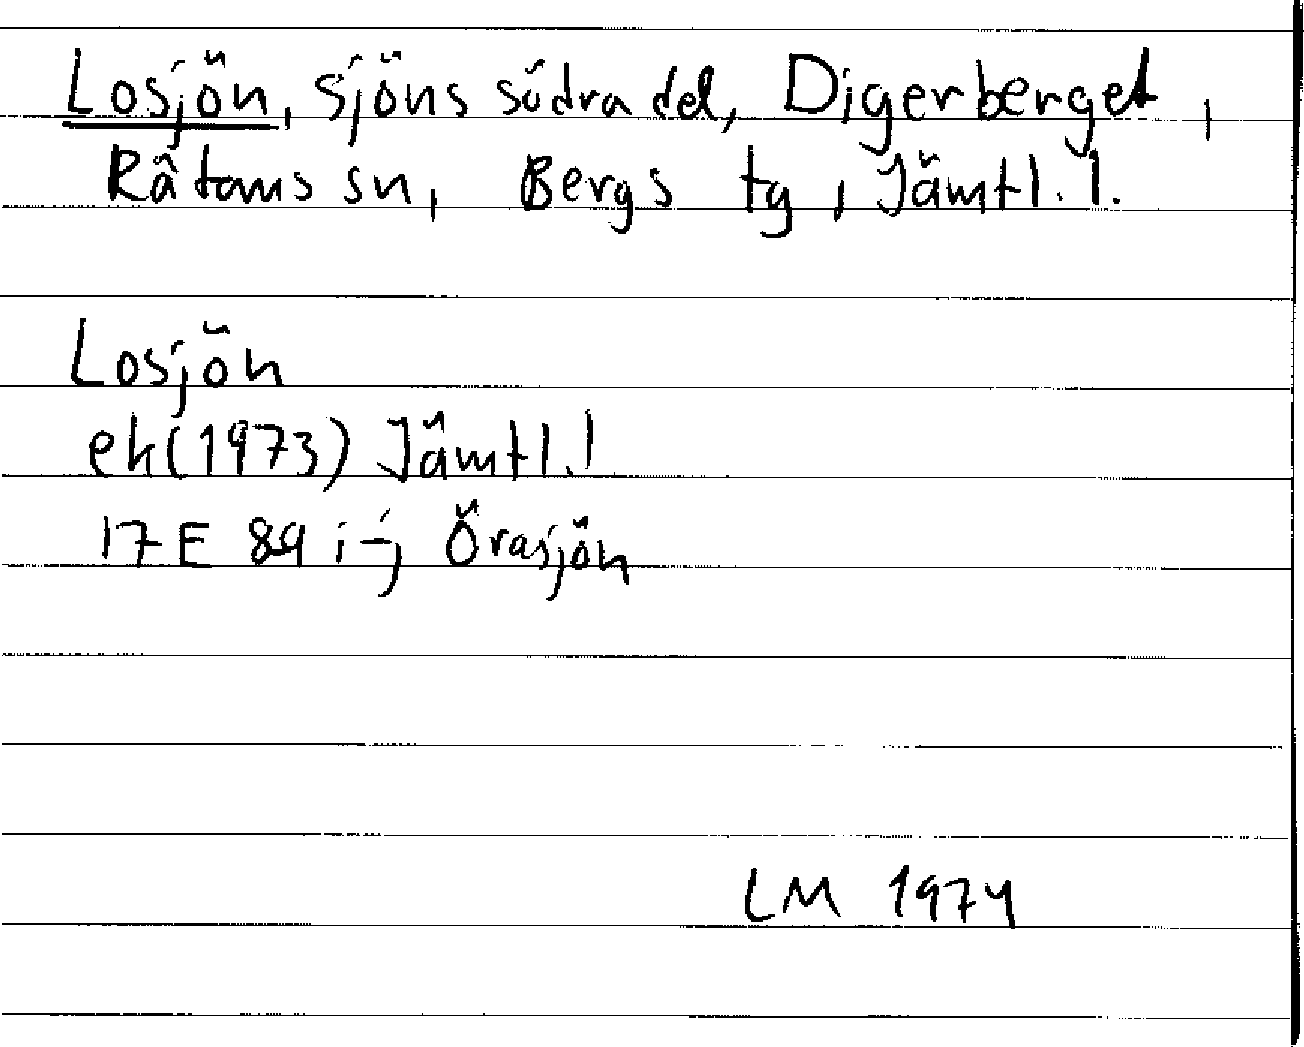 Losjön, sjöns södra del, Digerberget,
Råtans sn, Bergs tg, Jämtl. l.
Losjön
ek(1973) Jämtl.l
17 E 89 i-j Örasjön
LM 1974